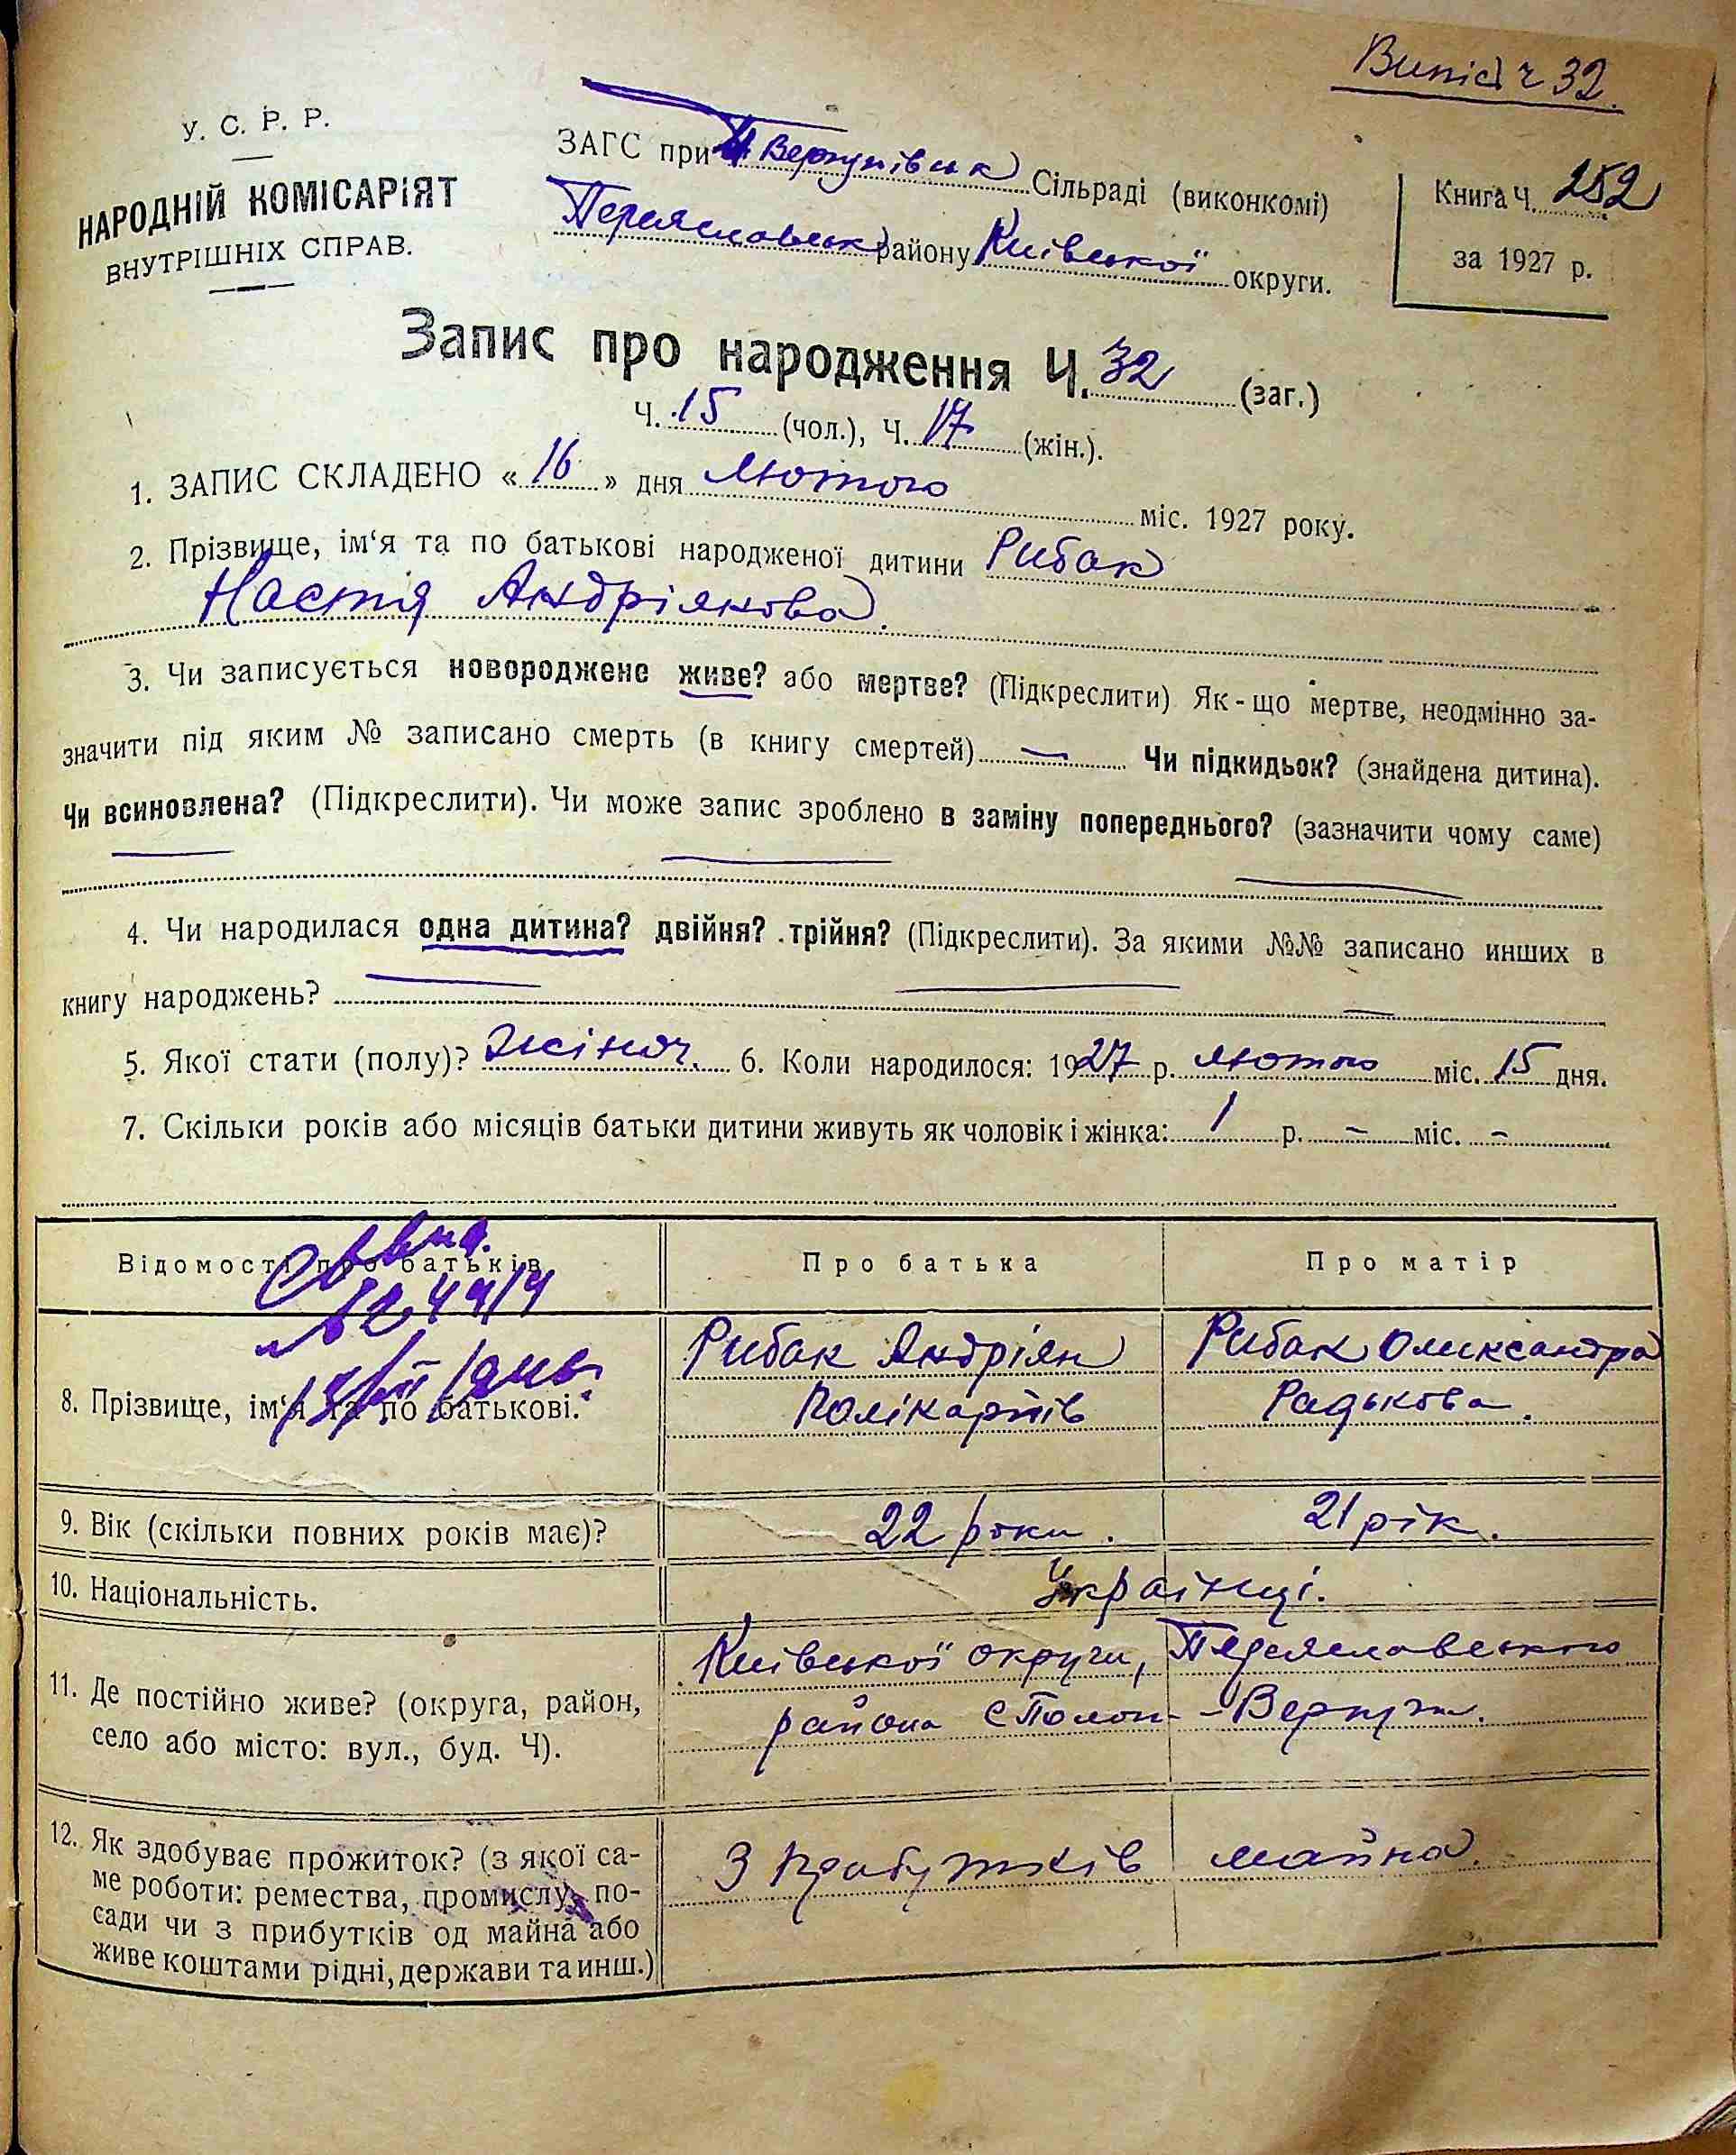 Випис ч 32.
У. С. Р. Р.
НАРОДНІЙ КОМІСАРІЯТ
ВНУТРІШНІХ СПРАВ.
ЗАГС при П Вергунівськ Сільраді (виконкомі)
Переяславськ району Київської округи.
Книга Ч. 252
за 1927 р.
Запис про народження Ч. 32 (заг.)
Ч. 15 (чол.), Ч. 17 (жін.).
1. ЗАПИС СКЛАДЕНО « 16 » дня Лютого міс. 1927 року.
2. Прізвище, ім‘я та по батькові народженої дитини Рибак
Настя Андріянова.
3. Чи записується новороджене живе? або мертве? (Підкреслити) Як-що мертве, неодмінно за-
значити під яким № записано смерть (в книгу смертей) — Чи підкидьок? (знайдена дитина).
Чи всиновлена? (Підкреслити). Чи може запис зроблено в заміну попереднього? (зазначити чому саме)
4. Чи народилася одна дитина? двійня? трійня? (Підкреслити). За якими №№ записано инших в
книгу народжень?
5. Якої стати (полу)? Жіноч. 6. Коли народилося: 1927 р. лютого міс. 15 дня.
7. Скільки років або місяців батьки дитини живуть як чоловік і жінка: 1 р. – міс. –
Відомості про батьків Про батька Про матір
8. Прізвище, ім‘я та по батькові.
Рибак Андріян
Полікарпів
Рибак Олександра
Радькова.
9. Вік (скільки повних років має)? 22 роки. 21 рік.
10. Національність. Українці.
11. Де постійно живе? (округа, район,
село або місто: вул., буд. Ч).
Київської округи, Переяславського
района с Полог-Вергун.
12. Як здобуває прожиток? (з якої са-
ме роботи: ремества, промислу, по-
сади чи з прибутків од майна або
живе коштами рідні, держави та инш.)
З прибутків майна.